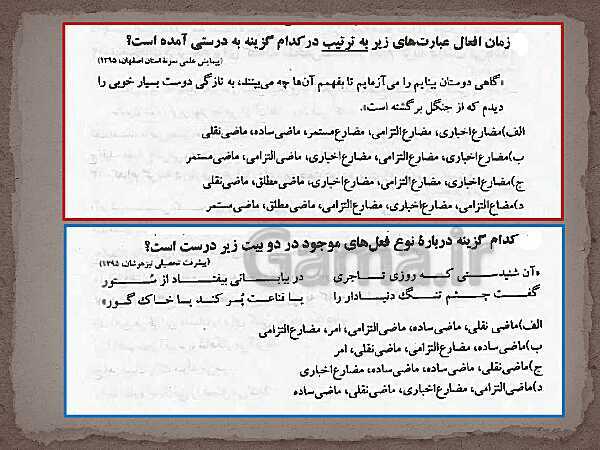 زمان افعال عبارت‌های زیر به ترتیب در کدام گزینه به درستی آمده است؟
(پیمایش علمی سمپاد استان اصفهان، ۱۳۹۵)
«گاهی دوستان بینایم را می‌آزمایم تا بفهمم آن‌ها چه می‌بینند، به تازگی دوست بسیار خوبی را
دیدم که از جنگل برگشته است».
الف)مضارع‌اخباری، مضارع‌التزامی، مضارع‌مستمر، ماضی‌ساده، ماضی‌نقلی
ب)مضارع‌اخباری، مضارع‌التزامی، مضارع‌اخباری، ماضی‌التزامی، ماضی‌مستمر
ج)مضارع‌اخباری، مضارع‌التزامی، مضارع‌اخباری، ماضی‌مطلق، ماضی‌نقلی
د)مضارع‌التزامی، مضارع‌اخباری، مضارع‌التزامی، ماضی‌مطلق، ماضی‌مستمر
کدام گزینه دربارهٔ نوع فعل‌های موجود در دو بیت زیر درست است؟
(پیشرفت تحصیلی تیزهوشان، ۱۳۹۵)
«آن شنیدستی که روزی تاجری در بیابانی بیفتاد از ستور
گفت چشم تنگ دنیادار را یا قناعت پُر کند یا خاک گور»
الف)ماضی نقلی، ماضی‌ساده، ماضی‌التزامی، امر، مضارع‌التزامی
ب)ماضی‌ساده، مضارع‌التزامی، ماضی‌نقلی، امر
ج)ماضی‌نقلی، ماضی‌ساده، ماضی‌ساده، مضارع‌اخباری
د)ماضی‌التزامی، مضارع‌اخباری، ماضی‌نقلی، ماضی‌ساده
Gama.ir